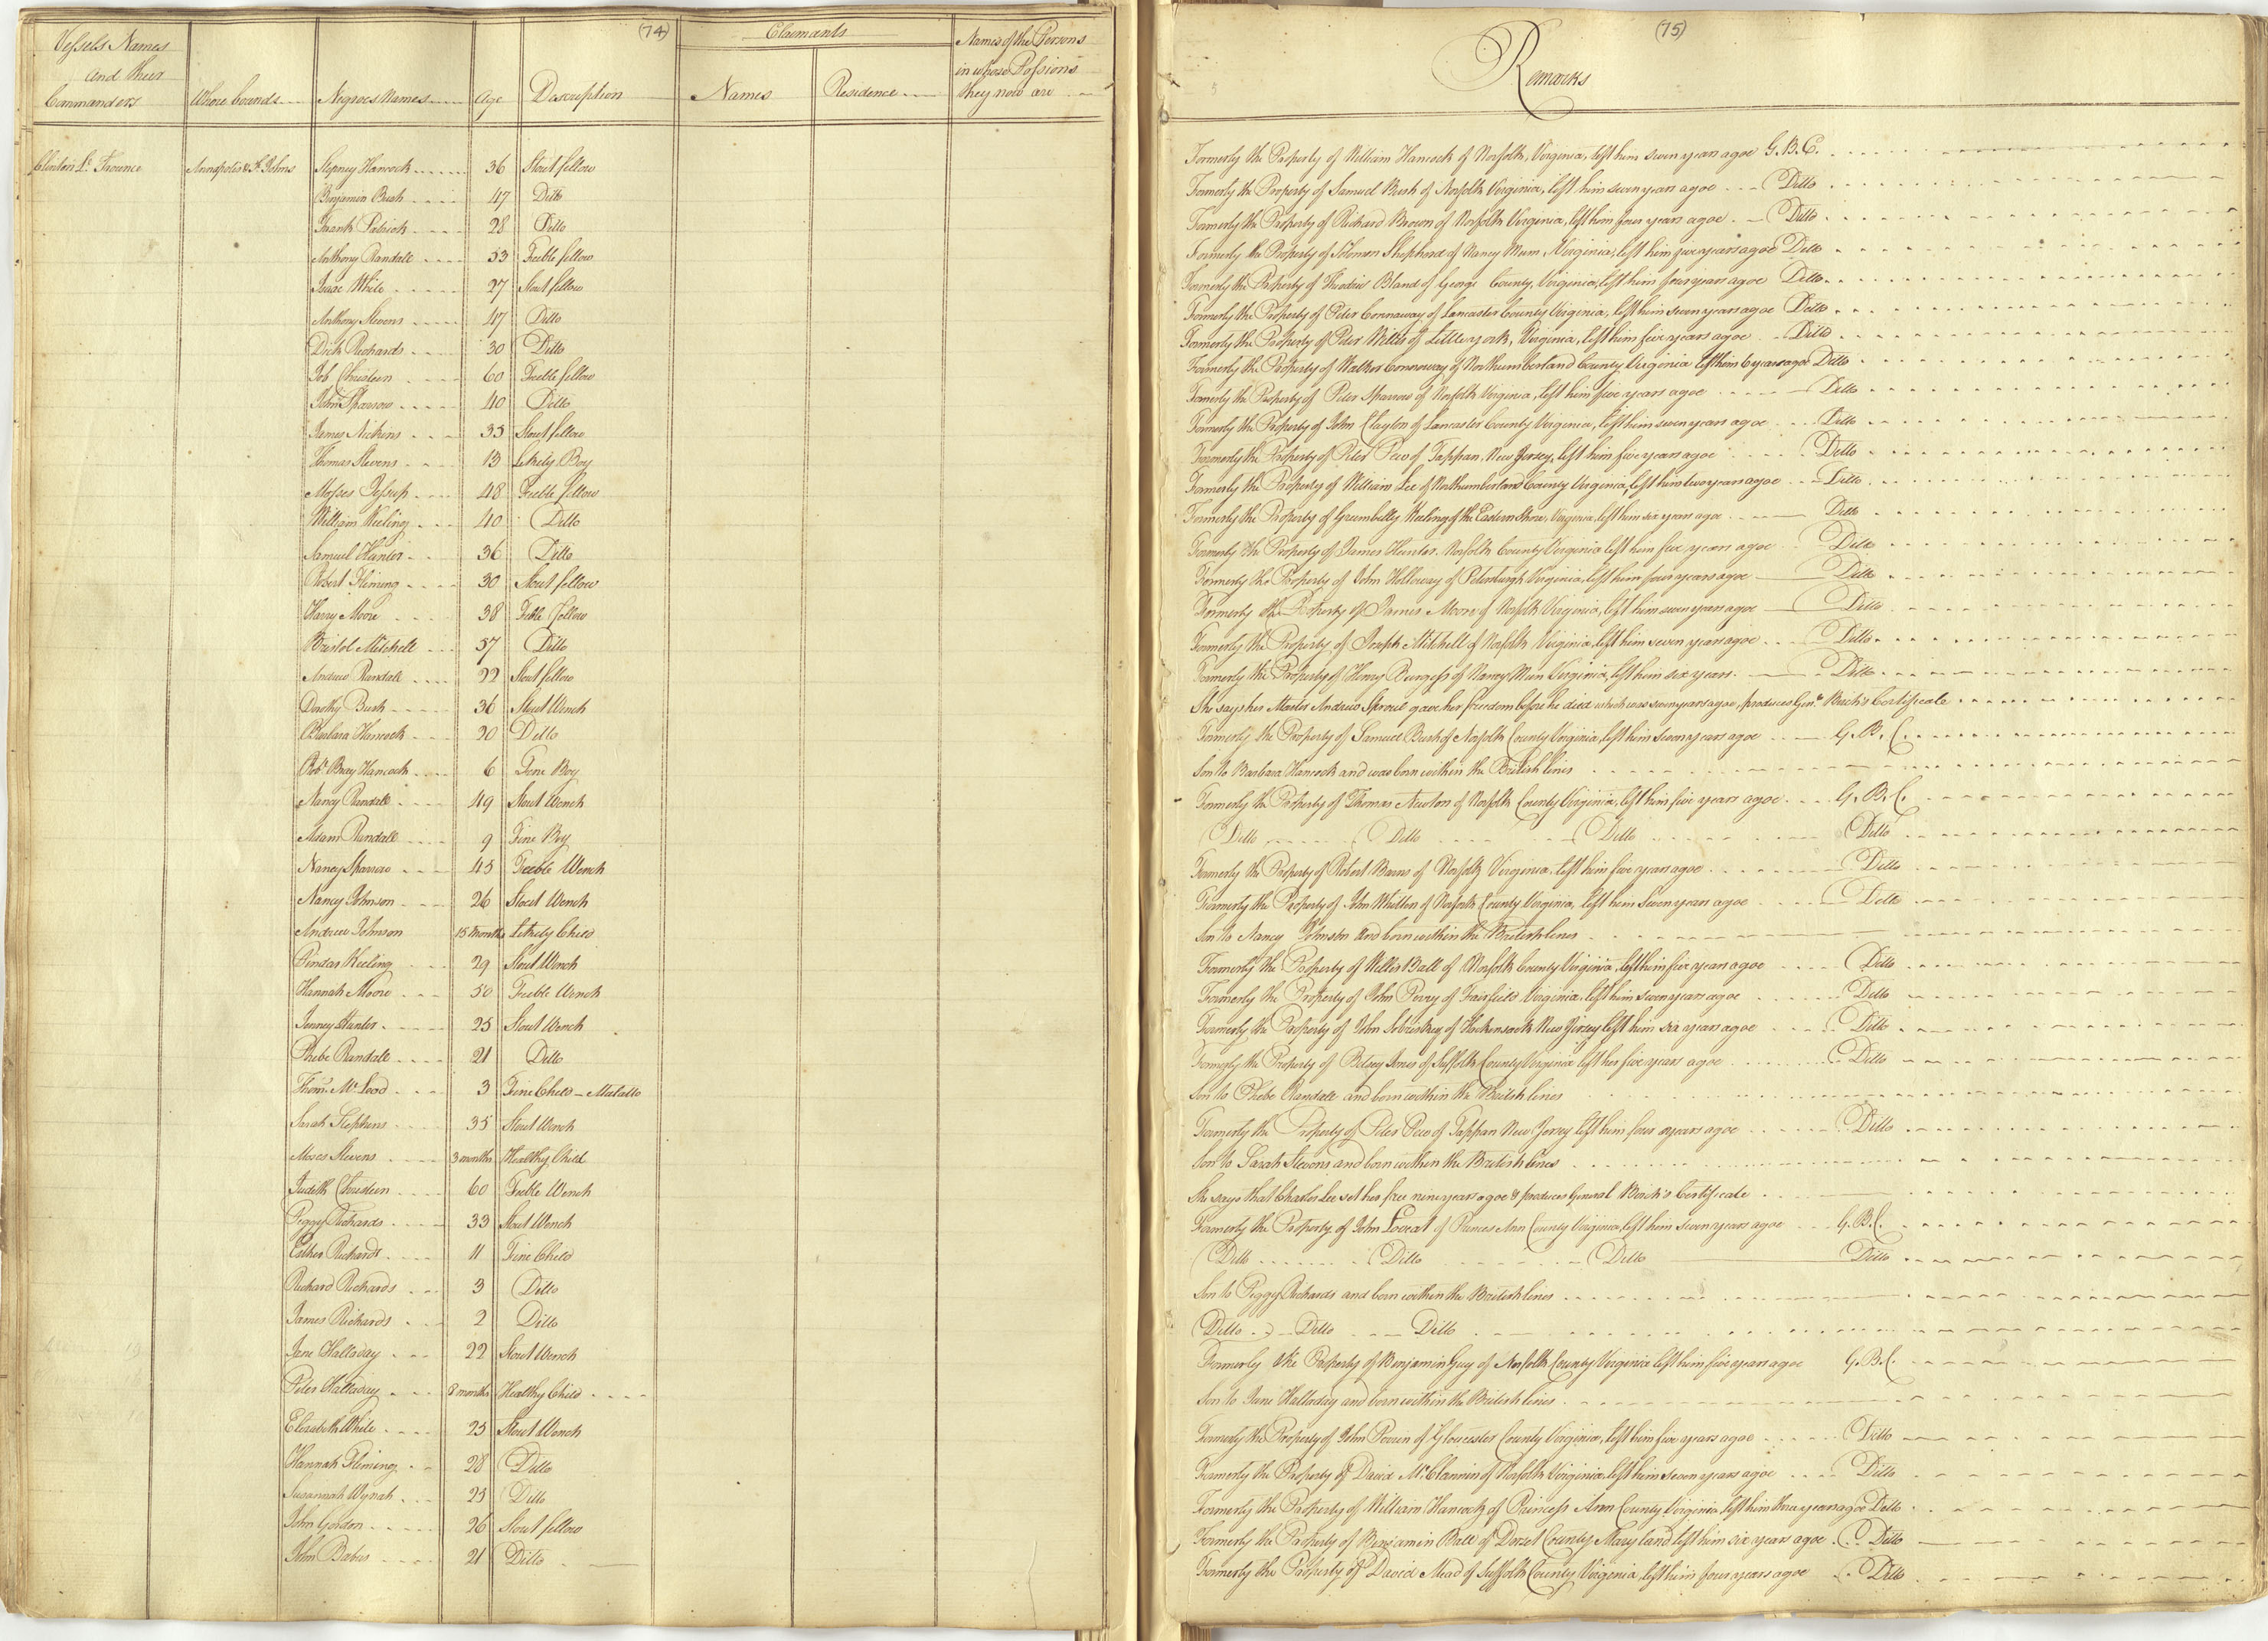 (74)
Vessels Names and their Commanders
Where bound
Negroes Names
Age
Description
Claimants
Names
Residence
Names of the Persons in whose Possions they now are
Clinton Lt. Trounce Annapolis & St. Johns Stepney Hancock 36 Stout fellow
Benjamin Bush 47 Ditto
Frank Patrick 28 Ditto
Anthony Randall 53 Feeble fellow
Isaac White 27 Stout fellow
Anthony Stevens 47 Ditto
Dick Richards 30 Ditto
Job Christeen 60 Feeble fellow
John Sparrow 40 Ditto
James Nickens 35 Stout fellow
Thomas Stevens 13 Likely Boy
Mosses Jessup 48 Feeble fellow
William Keeling 40 Ditto
Samuel Hunter 36 Ditto
Robert Fleming 30 Stout fellow
Harry Moore 38 Feble fellow
Bristol Mitchell 57 Ditto
Andrew Randall 22 Stout fellow
Dorothy Bush 36 Stout Wench
Barbara Hancock 20 Ditto
Robt. Bray Hancock 6 Fine Boy
Nancy Randall 49 Stout Wench
Adam Randall 9 Fine Boy
Nancy Sparrow 45 Feeble Wench
Nancy Johnson 26 Stout Wench
Andrew Johnson 15 months Likely Child
Pindar Keeling 29 Stout Wench
Hannah Moore 50 Feeble Wench
Jenney Hunter 25 Stout Wench
Phebe Randall 21 Ditto
Thoms. Mc.Leod 3 Fine Child - Mulatto
Sarah Stephens 35 Stout Wench
Moses Stevens 3 months Healthy Child
Judith Christeen 60 Feeble Wench
Peggy Richards 33 Stout Wench
Esther Richards 11 Fine Child
Richard Richards 3 Ditto
James Richards 2 Ditto
Jane Halladay 22 Stout Wench
Peter Halladay 8 months Healthy Child
Elizabeth White 25 Stout Wench
Hannah Fleming 28 Ditto
Susannah Wynah 23 Ditto
John Gordon 26 Stout fellow
John Babus 21 Ditto
(75)
Remarks
Formerly the Property of William Hancock of Norfolk, Virginia, left him seven years agoe G.B.C.
Formerly the Property of Samuel Bush of Norfolk Virginia, left him seven years agoe Ditto
Formerly the Property of Richard Brown of Norfolk Virginia, left him four years agoe Ditto
Formerly the Property of Solomon Shepherd of Nancy Mum, Virginia, left him five years agoe Ditto
Formerly the Property of Theodric Bland of George County, Virginia, left him four years agoe Ditto
Formerly the Property of Peter Connaway of Lancaster County Virginia, left him seven years agoe Ditto
Formerly the Property of Peter Wilks of Little york, Virginia, left him five years agoe Ditto
Formerly the Property of Walker Connaway of Northumberland County Virginia left him 6 years agoe Ditto
Formerly the Property of Peter Sparrow of Norfolk Virginia, left him five years agoe Ditto
Formerly the Property of John Clayton of Lancaster County Virginia, left him seven years agoe Ditto
Formerly the Property of Peter Pew of Tappan, New Jersey, left him five years agoe Ditto
Formerly the Property of William Lee of Northumberland County Virginia, left him two years agoe Ditto
Formerly the Property of Grumbelly Keeling of the Eastern Shore, Virginia, left him six years agoe Ditto
Formerly the Property of James Hunter, Norfolk County Virginia left him five years agoe Ditto
Formerly the Property of John Holloway of Petersburgh Virginia, left him four years agoe Ditto
Formerly the Property of James Moore of Norfolk Virginia, left him seven years agoe Ditto
Formerly the Property of Joseph Mitchell of Norfolk Virginia, left him seven years agoe Ditto
Formerly the Property of Henry Burgess of Nancy Mun Virginia, left him six years Ditto
She says her Master Andrew Sproul gave her freedom before he died which was seven years agoe, produces Genl. Birch's Certificate
Formerly the Property of Samuel Bush of Norfolk County Virginia, left him seven years agoe G.B.C.
Son to Barbara Hancock and was born within the British lines
Formerly the Property of Thomas Newton of Norfolk County Virginia, left him five years agoe G.B.C.
Ditto Ditto Ditto Ditto
Formerly the Property of Robert Barns of Norfolk Virginia, left him five years agoe Ditto
Formerly the Property of John Whitten of Norfolk County Virginia, left him seven years agoe Ditto
Son to Nancy Johnston and born within the British lines
Formerly the Property of Willis Ball of Norfolk County Virginia, left him five years agoe Ditto
Formerly the Property of John Perry of Fairfield Virginia, left him seven years agoe Ditto
Formerly the Property of John Lobriskey of Hackensack New Jersey left him six years agoe Ditto
Formerly the Property of Betsey Jones of Suffolk County Virginia left her five years agoe Ditto
Son to Phebe Randall and born within the British lines
Formerly the Property of Peter Pew of Tappan New Jersey left him four years agoe Ditto
Son to Sarah Stevens and born within the British lines
She says that Charles Lee set her free nine years agoe & produces General Birch's Certificate
Formerly the Property of John Loveat of Princes Ann County Virginia, left him seven years agoe G.B.C.
Ditto Ditto Ditto Ditto
Son to Peggy Richards and born within the British lines
Ditto Ditto Ditto
Formerly the Property of Benjamin Guy of Norfolk County Virginia left him five years agoe G.B.C.
Son to Jane Halladay and born within the British lines
Formerly the Property of John Perrin of Gloucester County Virginia, left him five years agoe Ditto
Formerly the Property of David Mc.Clannin of Norfolk Virginia left him seven years agoe Ditto
Formerly the Property of William Hancock of Princess Ann County Virginia left him three years agoe Ditto
Formerly the Property of Benjamin Ball of Dorset County Maryland, left him six years agoe Ditto
Formerly the Property of David Mead of Suffolk County Virginia, left him four years agoe Ditto